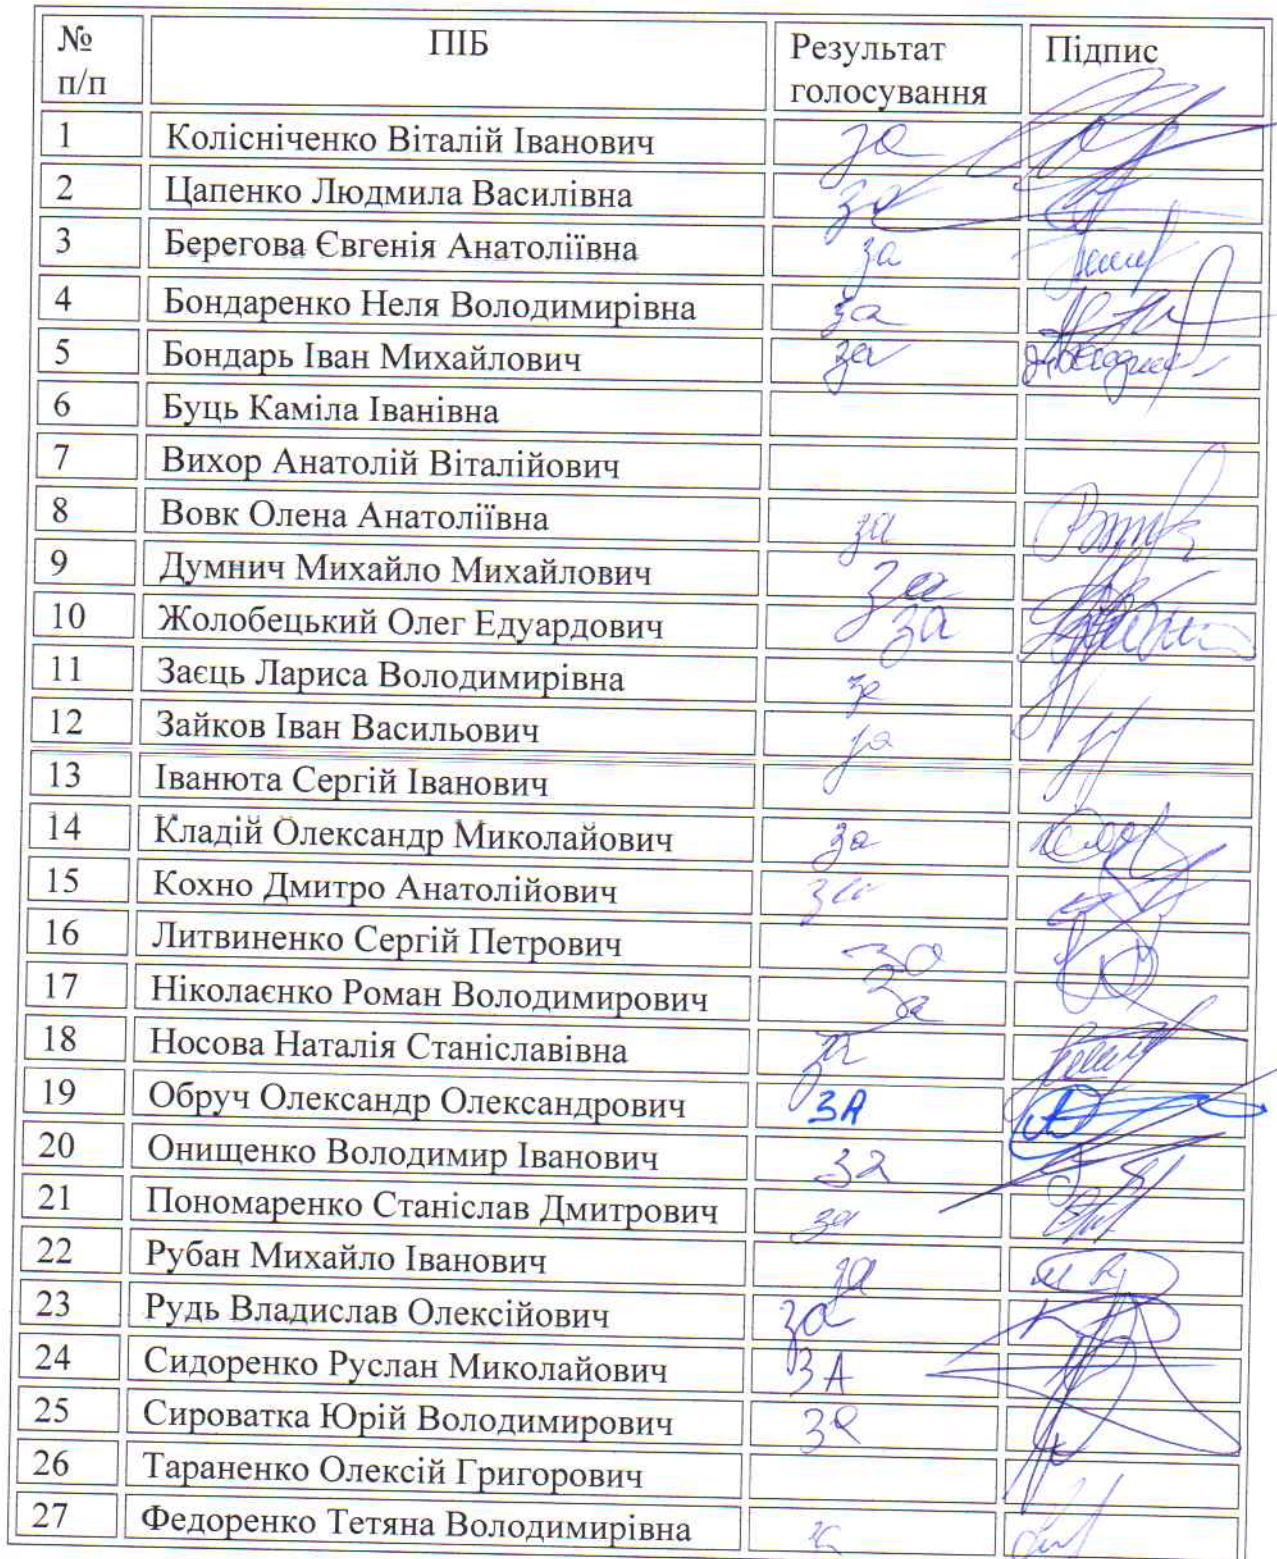 № п/п ПІБ Результат голосування Підпис
1 Колісніченко Віталій Іванович за
2 Цапенко Людмила Василівна за
3 Берегова Євгенія Анатоліївна за
4 Бондаренко Неля Володимирівна за
5 Бондарь Іван Михайлович за
6 Буць Каміла Іванівна
7 Вихор Анатолій Віталійович
8 Вовк Олена Анатоліївна за
9 Думнич Михайло Михайлович за
10 Жолобецький Олег Едуардович за
11 Заєць Лариса Володимирівна за
12 Зайков Іван Васильович за
13 Іванюта Сергій Іванович
14 Кладій Олександр Миколайович за
15 Кохно Дмитро Анатолійович за
16 Литвиненко Сергій Петрович за
17 Ніколаєнко Роман Володимирович за
18 Носова Наталія Станіславівна за
19 Обруч Олександр Олександрович ЗА
20 Онищенко Володимир Іванович за
21 Пономаренко Станіслав Дмитрович за
22 Рубан Михайло Іванович за
23 Рудь Владислав Олексійович за
24 Сидоренко Руслан Миколайович ЗА
25 Сироватка Юрій Володимирович за
26 Тараненко Олексій Григорович
27 Федоренко Тетяна Володимирівна за